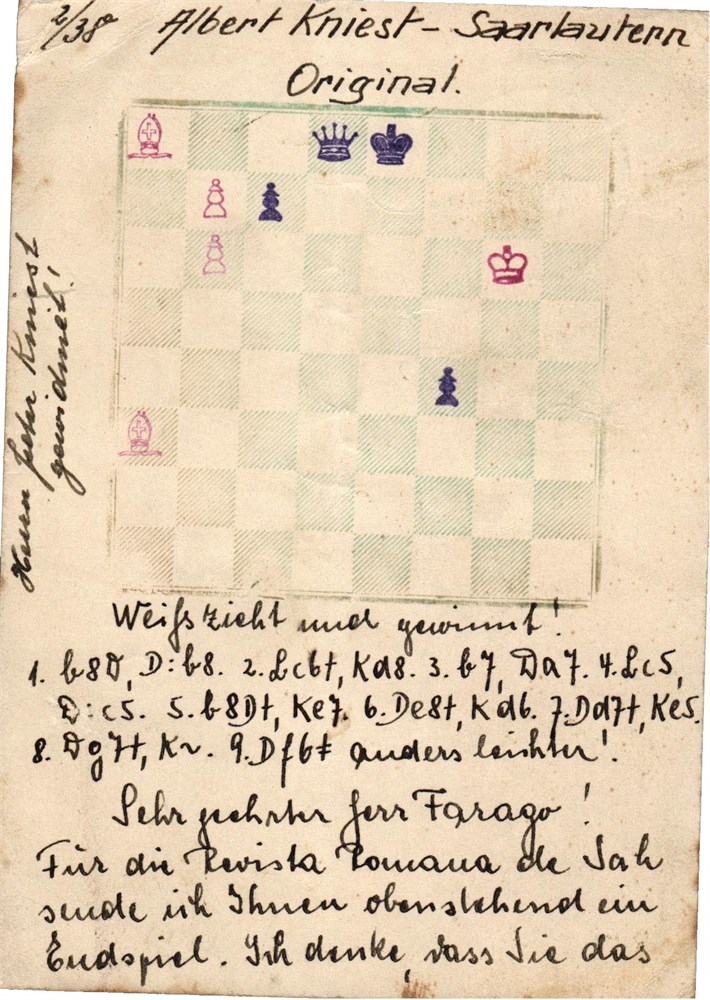 2/38 Albert Kniest - Saarlautern
Original.
Herrn Peter Kniest
gewidmet!
Weiſs zieht und gewinnt!
1. b8D, D:b8. 2. Lc6†, Kd8. 3. b7, Da7. 4. Lc5,
D:c5. 5. b8D†, Ke7. 6. De8†, Kd6. 7. Dd7†, Ke5.
8. Dg7†, K~. 9. Df6‡ anders leichter!
Sehr geehrter Herr Farago!
Für die Revista Romana de Sah
sende ich Ihnen obenstehend ein
Endspiel. Ich denke, dass Sie das